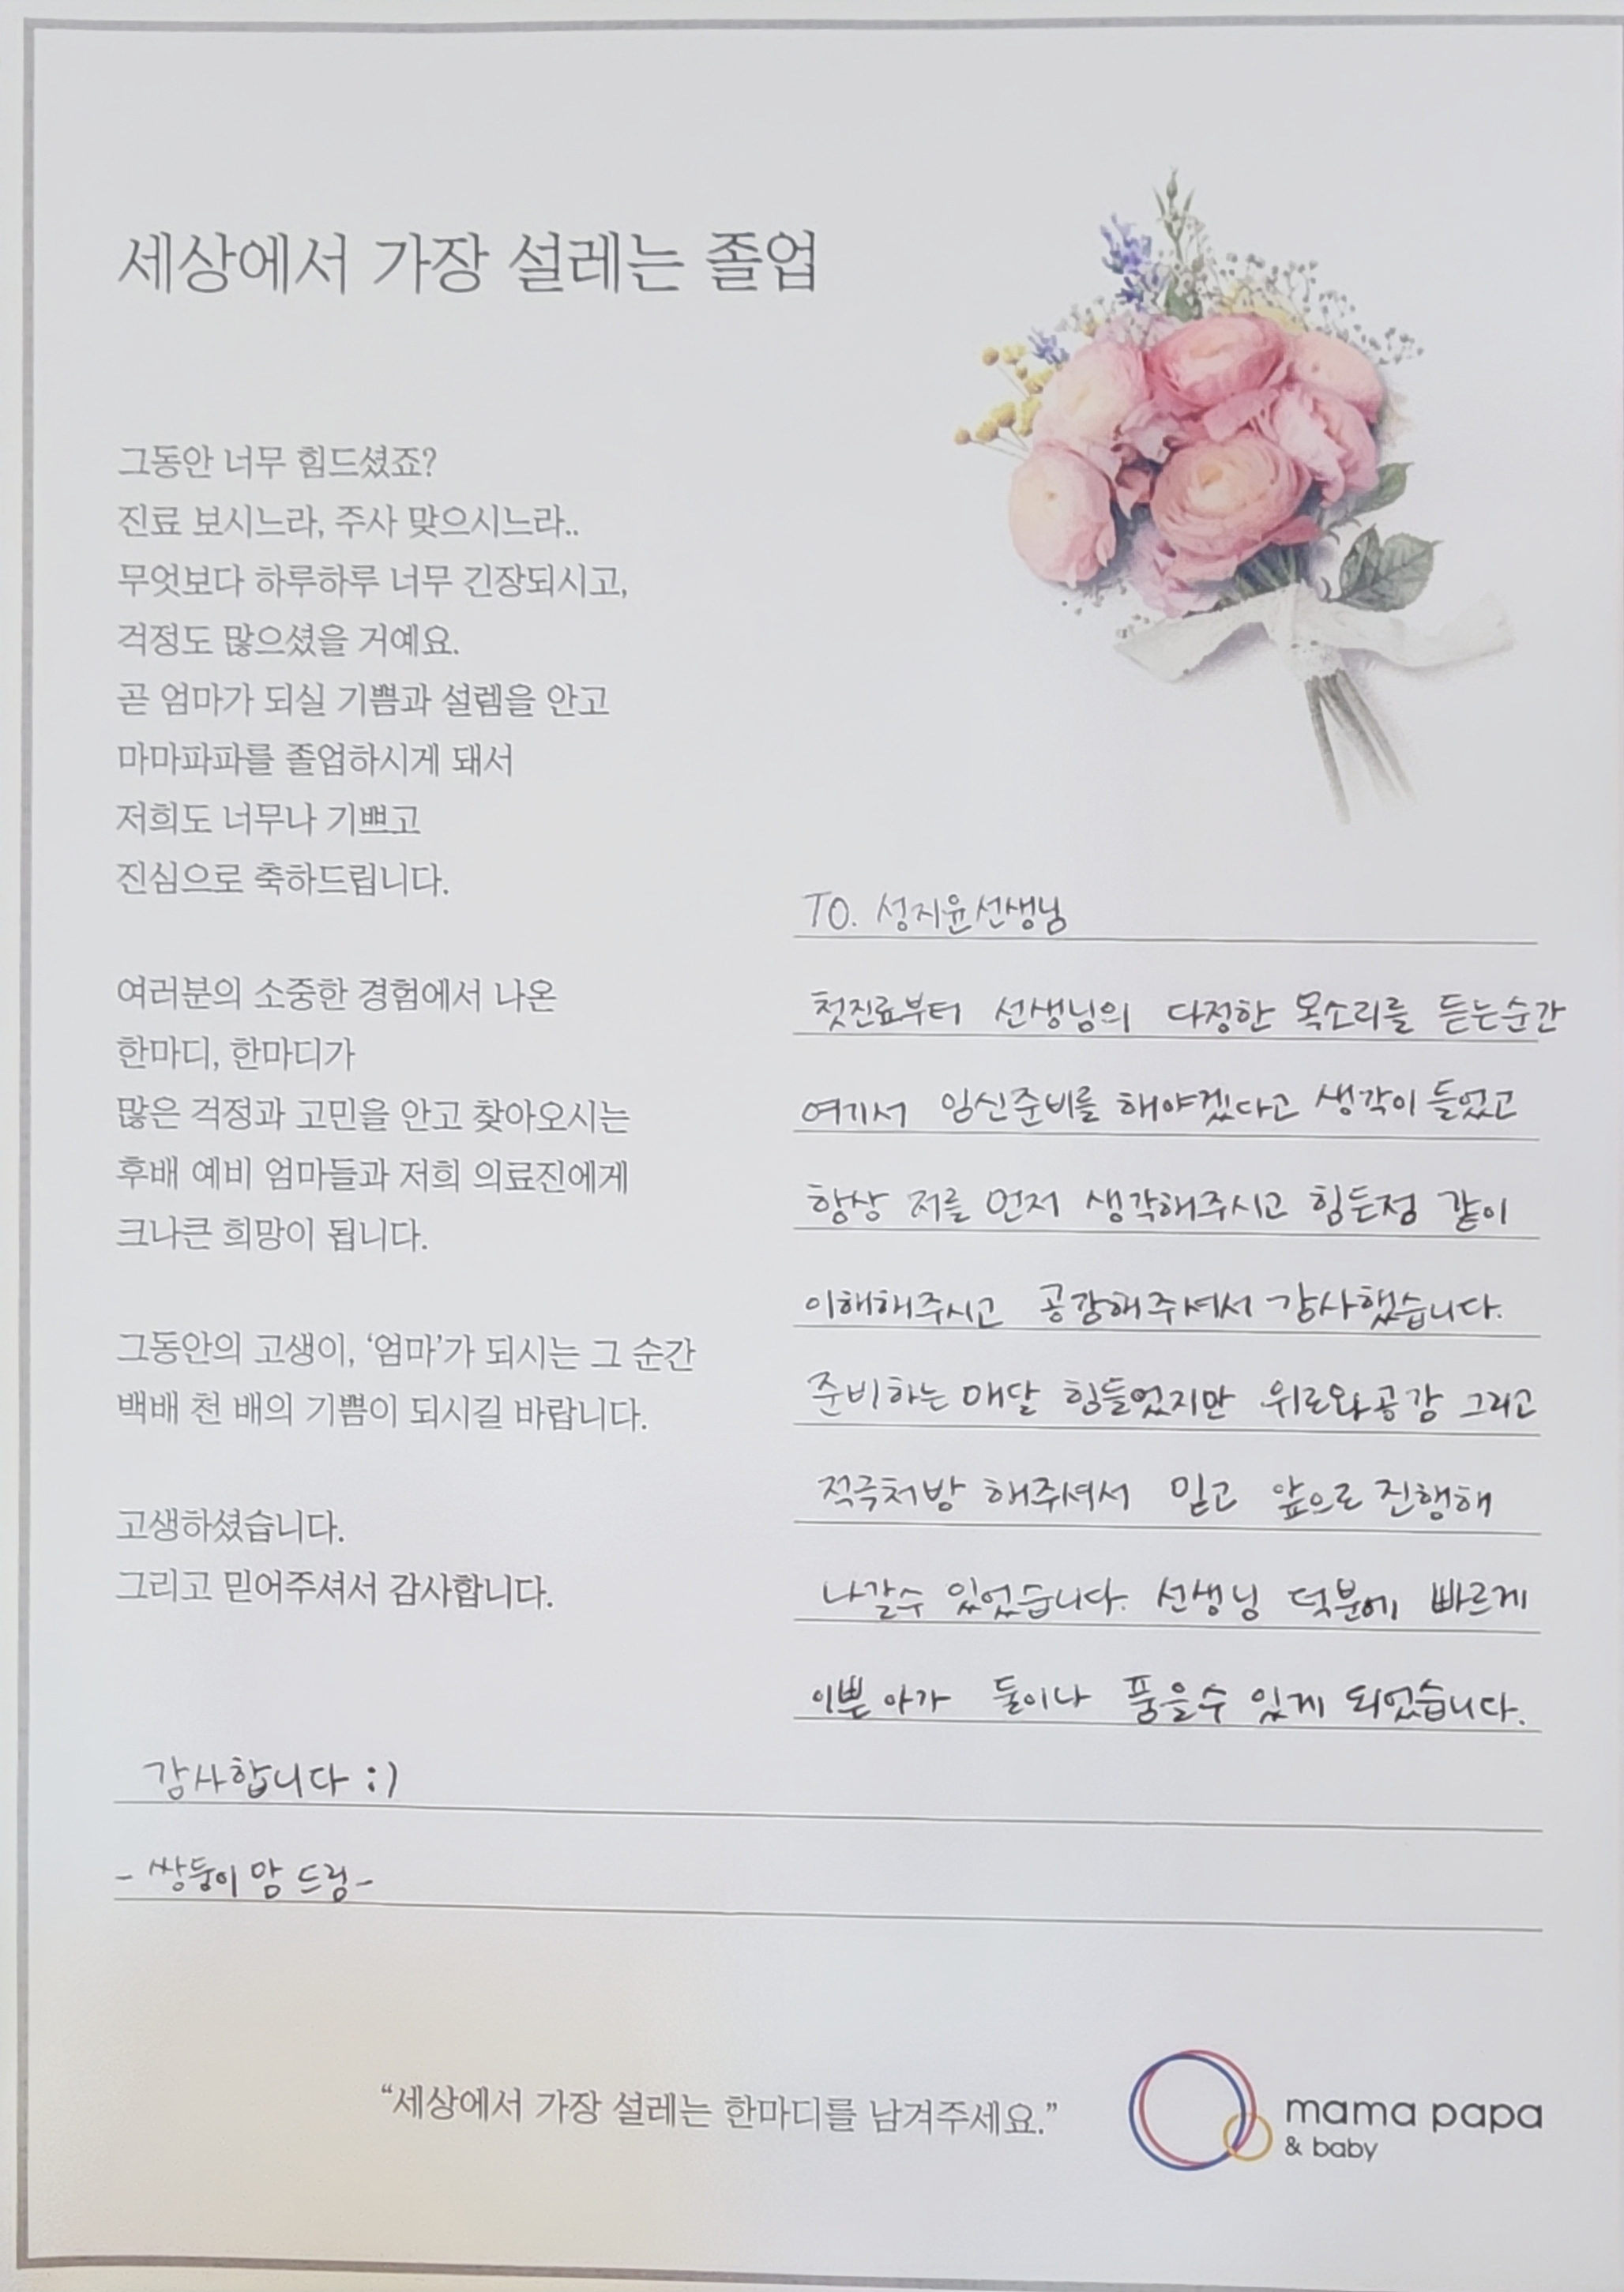 세상에서 가장 설레는 졸업
그동안 너무 힘드셨죠?
진료 보시느라, 주사 맞으시느라..
무엇보다 하루하루 너무 긴장되시고,
걱정도 많으셨을 거예요.
곧 엄마가 되실 기쁨과 설렘을 안고
마마파파를 졸업하시게 돼서
저희도 너무나 기쁘고
진심으로 축하드립니다.
여러분의 소중한 경험에서 나온
한마디, 한마디가
많은 걱정과 고민을 안고 찾아오시는
후배 예비 엄마들과 저희 의료진에게
크나큰 희망이 됩니다.
그동안의 고생이, ‘엄마’가 되시는 그 순간
백배 천 배의 기쁨이 되시길 바랍니다.
고생하셨습니다.
그리고 믿어주셔서 감사합니다.
TO. 성지윤선생님
첫진료부터 선생님의 다정한 목소리를 듣는순간
여기서 임신준비를 해야겠다고 생각이 들었고
항상 저를 먼저 생각해주시고 힘든점 같이
이해해주시고 공감해주셔서 감사했습니다.
준비하는 매달 힘들었지만 위로와공감 그리고
적극처방 해주셔서 믿고 앞으로 진행해
나갈수 있었습니다. 선생님 덕분에 빠르게
이쁜 아가 둘이나 품을수 있게 되었습니다.
감사합니다 :)
- 쌍둥이 맘 드림-
“세상에서 가장 설레는 한마디를 남겨주세요.”
mama papa
& baby